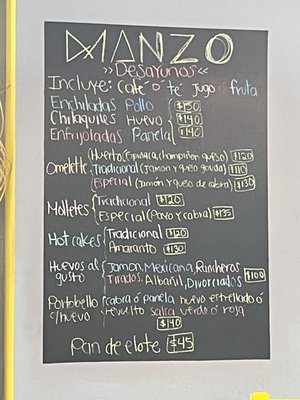 MANZO
>>Desayunos<<
Incluye: café ó té jugo ó fruta
Enchiladas Pollo $150
Chilaquiles Huevo $140
Enfrijoladas Panela $140
Huerto (Espinaca, champiñon, queso) $120
Omelette Tradicional (Jamon y queso gouda) $110
Especial (Jamón y queso de cabra) $130
Molletes Tradicional $120
Especial (Pavo y cabra) $135
Hot cakes Tradicional $120
Amaranto $130
Huevos al gusto Jamon, Mexicana, Rancheros
Tirados, Albañil, Divorciados $100
Portobello c/huevo cabra ó panela huevo estrellado ó
revuelto salsa verde ó roja
$140
Pan de elote $45